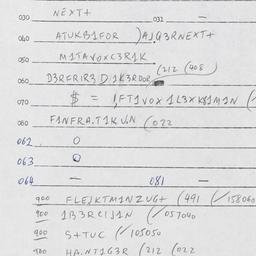 030 NEXT+ 031 —
040 ATUKB1FOR )A1Q3RNEXT+
050 M1TAVOXC3R1K
060 D3RFRIR3D.1K3RDOR (212 (408)
070 $ = 1FT1VOX1L3XK81M1N (
080 F1NFRA.T1KU.N (022
062 0
063 0
064 — 081 —
900 FLEJKTM1NZUG+ (491 (/158060
900 1B3RCIJ1N (/057040
900 S+TUC (/105050
900 HA.NT1G3R (212 (022